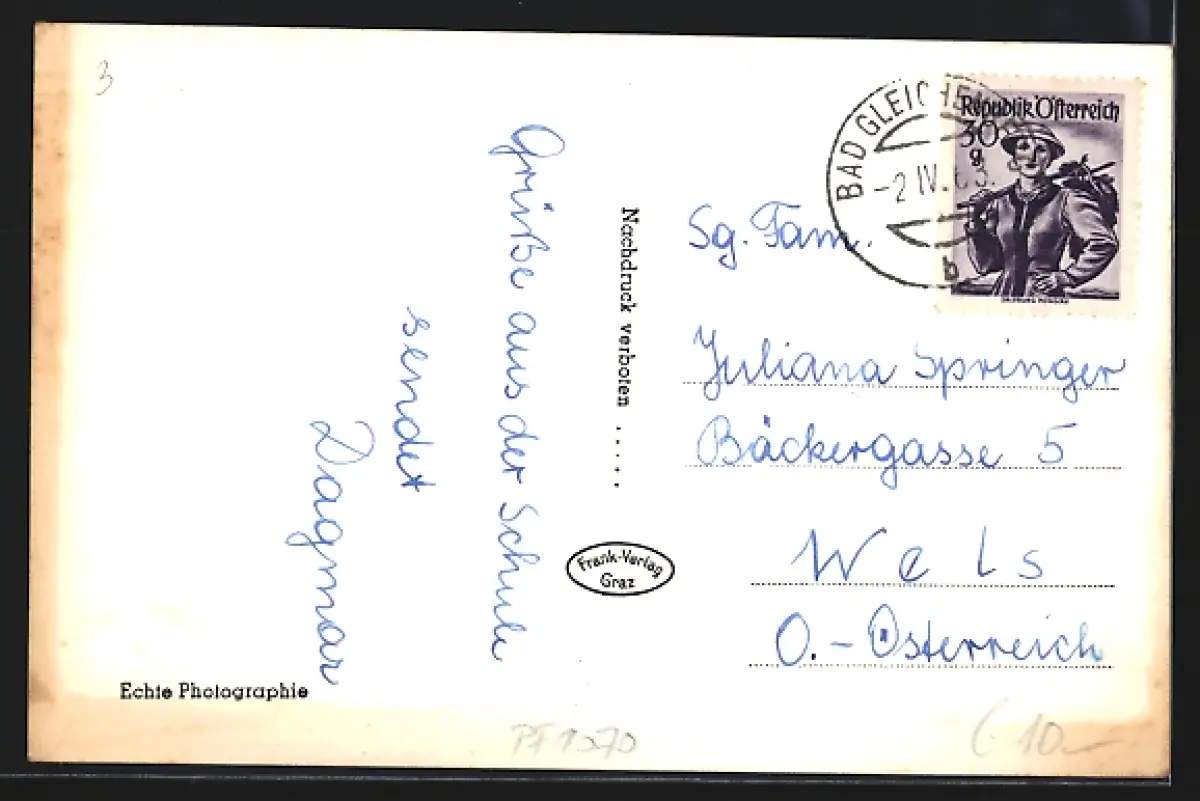 3
Grüße aus der Schule
sendet
Dagmar
Echte Photographie
Nachdruck verboten .....
Frank-Verlag
Graz
BAD GLEICHE
-2.IV.63.
b
Republik Österreich
30
g
Sg. Fam.
Juliana Springer
Bäckergasse 5
Wels
O.-Österreich
PF 1070
€ 10.-